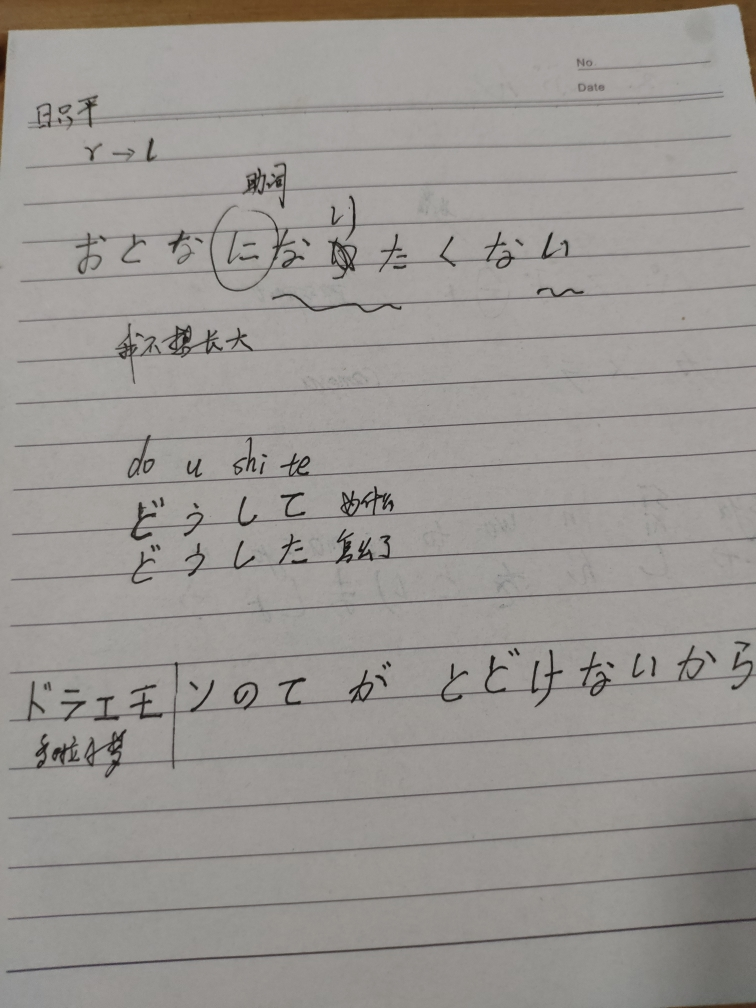 No
Date
r→l
助词
り
おとなになたくない
我不想长大
do u shite
どうして 为什么
どうした 怎么了
ドラエモンのてがとどけないから
多啦A梦